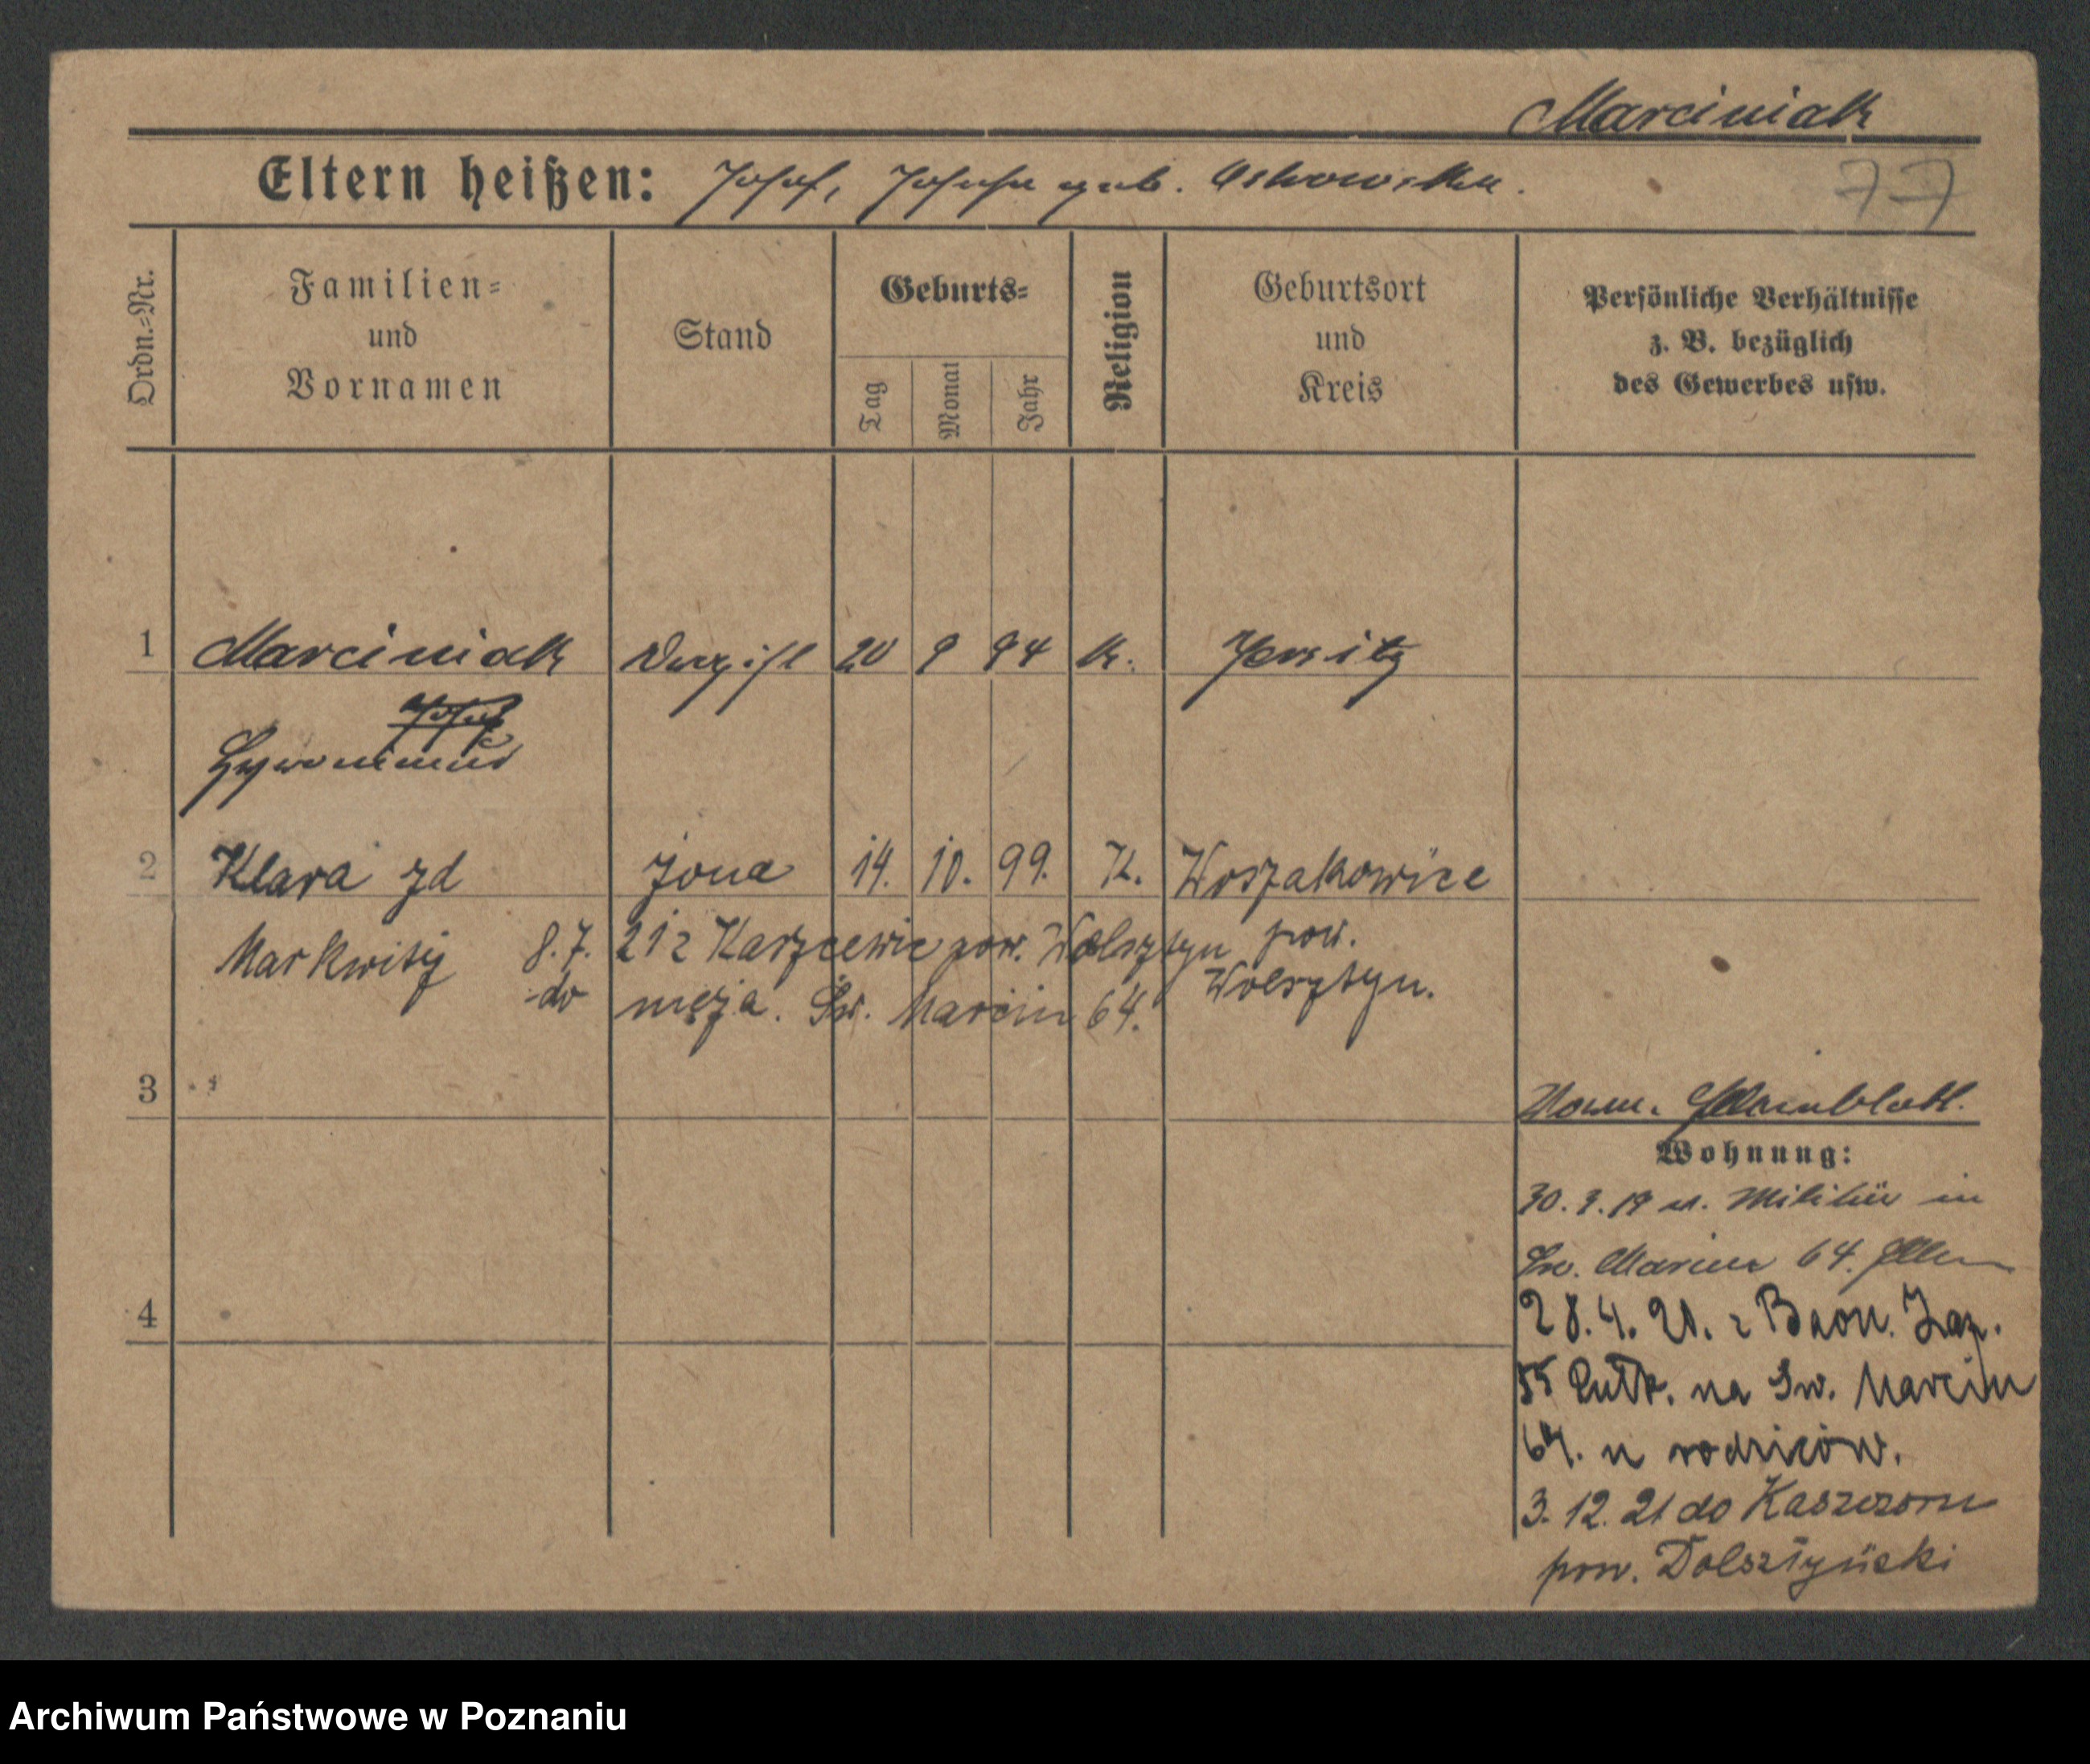 Marciniak
Eltern heißen: Josef, Josefa geb.
77
Ordn.-Nr.
Familien-
und
Vornamen
Stand
Geburts-
Tag
Monat
Jahr
Religion
Geburtsort
und
Kreis
Persönliche Verhältnisse
z. B. bezüglich
des Gewerbes usw.
1 Marciniak 20 9 94 k. Jersitz
Josef
Hyronimus
2 Klara zd żona 14. 10. 99. K. Woszakowice
Markwitz 8.7. 212 pow. Wolsztyn pow.
do męża. Św. Marcin 64. Wolsztyn.
3
Wohnung:
30. 3. 19 Militär in
Św. Marcin 64. Eltern
4
28. 4. 21. z Baon. Zap.
55 na Św. Marcin
64. u rodziców.
3. 12. 21 do
pow.
Archiwum Państwowe w Poznaniu